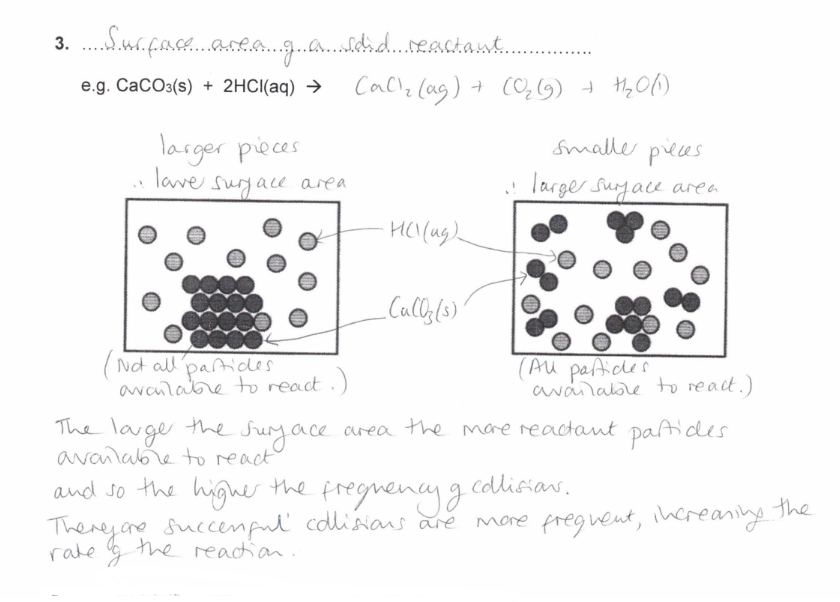 3. Surface area of a solid reactant
e.g. CaCO₃(s) + 2HCl(aq) → CaCl₂(aq) + CO₂(g) + H₂O(l)
larger pieces
∴ lower surface area
smaller pieces
∴ larger surface area
HCl(aq)
CaCO₃(s)
(Not all particles
available to react.)
(All particles
available to react.)
The larger the surface area the more reactant particles
available to react
and so the higher the frequency of collisions.
Therefore successful collisions are more frequent, increasing the
rate of the reaction.